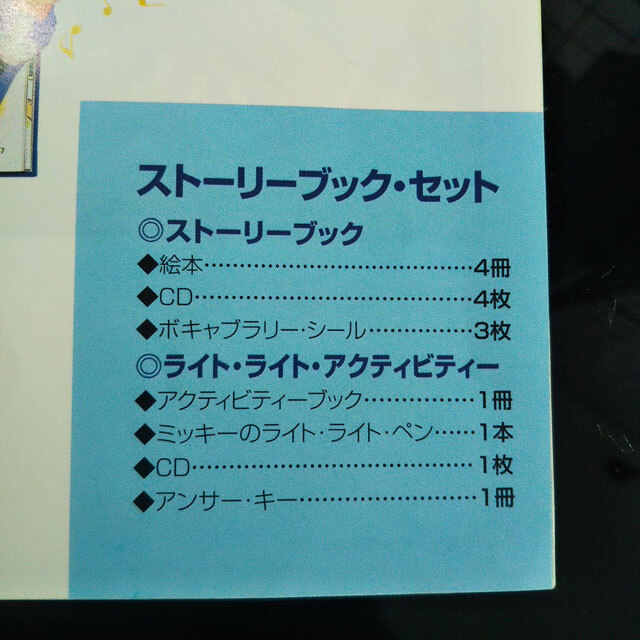 7
ストーリーブック・セット
◎ストーリーブック
◆絵本…………………………4冊
◆CD…………………………4枚
◆ボキャブラリー・シール…………3枚
◎ライト・ライト・アクティビティー
◆アクティビティーブック…………1冊
◆ミッキーのライト・ライト・ペン……1本
◆CD…………………………1枚
◆アンサー・キー…………………1冊